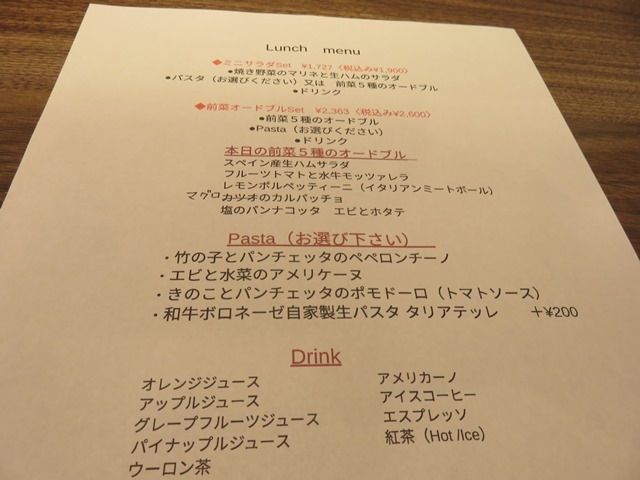 Lunch menu
◆ミニサラダSet ¥1,727〈税込み¥1,900〉
●焼き野菜のマリネと生ハムのサラダ
●パスタ（お選びください）又は 前菜５種のオードブル
●ドリンク
◆前菜オードブルSet ¥2,363〈税込み¥2,600〉
●前菜５種のオードブル
●Pasta（お選びください）
●ドリンク
本日の前菜５種のオードブル
スペイン産生ハムサラダ
フルーツトマトと水牛モッツァレラ
レモンポルペッティーニ（イタリアンミートボール）
マグロカツオのカルパッチョ
塩のパンナコッタ エビとホタテ
Pasta（お選び下さい）
・竹の子とパンチェッタのペペロンチーノ
・エビと水菜のアメリケーヌ
・きのことパンチェッタのポモドーロ（トマトソース）
・和牛ボロネーゼ自家製生パスタ タリアテッレ ＋¥200
Drink
オレンジジュース
アップルジュース
グレープフルーツジュース
パイナップルジュース
ウーロン茶
アメリカーノ
アイスコーヒー
エスプレッソ
紅茶（Hot /Ice）